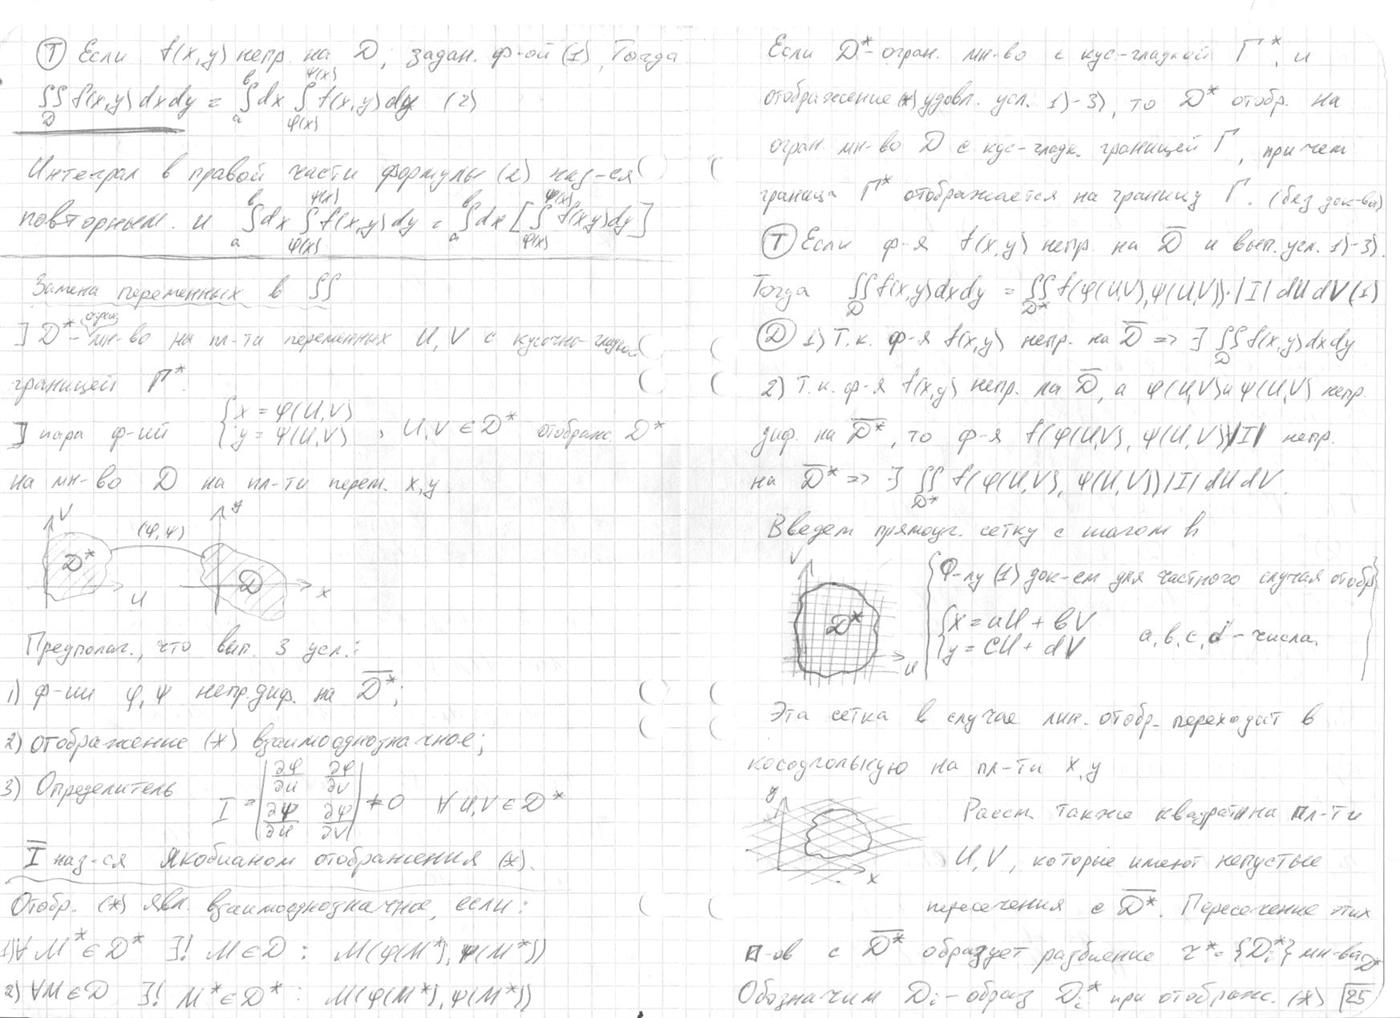 (T) Если f(x,y) непр. на D, задан. ф-ой (1), Тогда
∬_D f(x,y)dxdy = ∫_a^b dx ∫_{φ(x)}^{ψ(x)} f(x,y)dy (2)
Интеграл в правой части формулы (2) наз-ся
повторным. и ∫_a^b dx ∫_{φ(x)}^{ψ(x)} f(x,y)dy = ∫_a^b dx [∫_{φ(x)}^{ψ(x)} f(x,y)dy]
Замена переменных в ∬
огран.
] D* - мн-во на пл-ти переменных U,V с кусочно-гладкой
границей Г*.
] пара ф-ий {x = φ(U,V) y = ψ(U,V), U,V ∈ D* отображ. D*
на мн-во D на пл-ти перем. x,y.
V (φ,ψ) y
D* D
U x
Предполаг., что вып. 3 усл.:
1) ф-ии φ,ψ непр.диф. на D̄*;
2) отображение (*) взаимооднозначное;
3) Определитель I = |∂φ/∂u ∂φ/∂v; ∂ψ/∂u ∂ψ/∂v| ≠ 0 ∀ U,V ∈ D*
I наз-ся Якобианом отображения (*).
Отобр. (*) явл. взаимооднозначное, если:
1) ∀ M* ∈ D* ∃! M ∈ D : M(φ(M*), ψ(M*))
2) ∀ M ∈ D ∃! M* ∈ D* : M(φ(M*), ψ(M*))
Если D* - огран. мн-во с кус-гладкой Г*, и
отображение (*) удовл. усл. 1)-3), то D* отобр. на
огран. мн-во D с кус-гладк. границей Г, причем
граница Г* отображается на границу Г. (без док-ва)
(T) Если ф-я f(x,y) непр. на D̄ и вып. усл. 1)-3).
Тогда ∬_D f(x,y)dxdy = ∬_{D*} f(φ(U,V),ψ(U,V))·|I|dUdV (1)
(D) 1) Т.к. ф-я f(x,y) непр. на D̄ => ∃ ∬_D f(x,y)dxdy
2) Т.к. ф-я f(x,y) непр. на D̄, а φ(U,V) и ψ(U,V) непр.
диф. на D̄*, то ф-я f(φ(U,V), ψ(U,V))|I| непр.
на D̄* => ∃ ∬_{D*} f(φ(U,V), ψ(U,V))|I|dUdV.
Введем прямоуг. сетку с шагом h
V D* U
Ф-лу (1) док-ем для частного случая отобр
{x = aU + bV
y = cU + dV a,b,c,d - числа.
Эта сетка в случае лин. отобр. переходит в
косоугольную на пл-ти x,y
y x
Рассм. такие квадраты на пл-ти
U,V, которые имеют непустые
пересечения с D̄*. Пересечение этих
□-ов с D̄* образует разбиение τ* = {D_i*} мн-ва D*
Обозначим D_i - образ D_i* при отображ. (*) 25